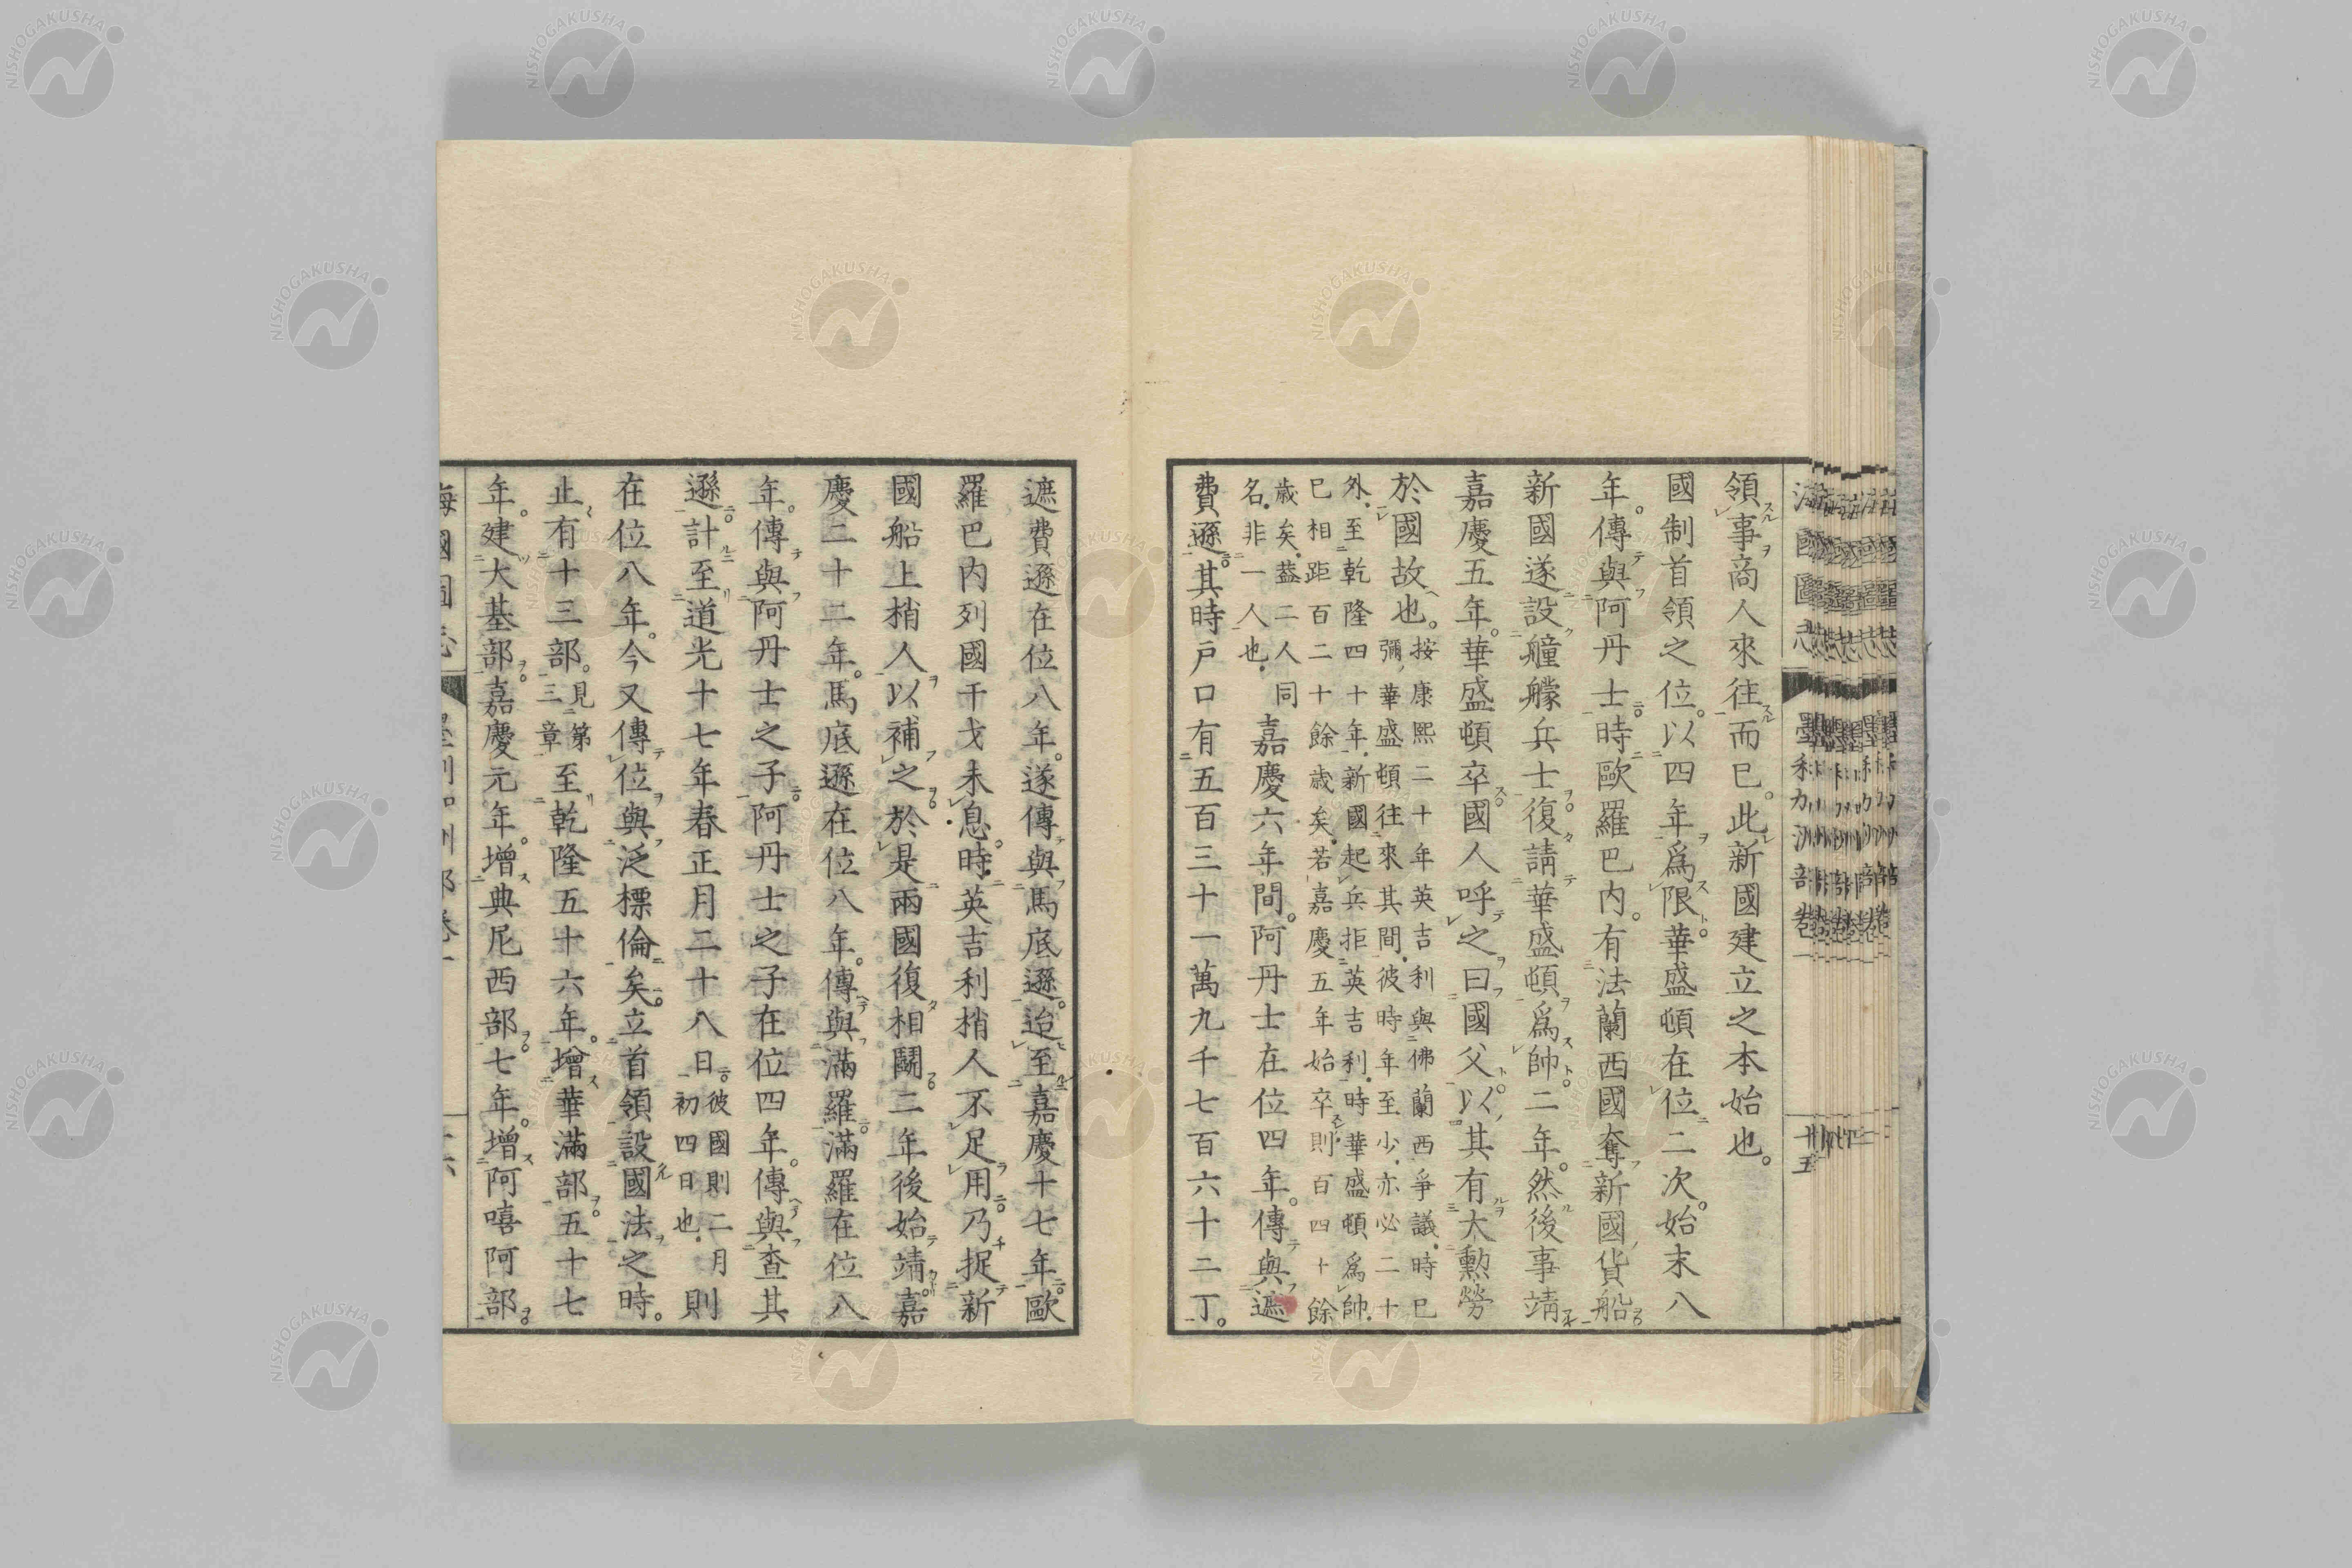 領事商人來往而已。此新國建立之本始也。
國制首領之位。以四年爲限。華盛頓在位二次。始末八
年。傳與阿丹士。時歐羅巴內。有法蘭西國奪新國貨船
新國遂設艟艨兵士。復請華盛頓爲帥。二年。然後事靖
嘉慶五年。華盛頓卒。國人呼之曰國父。以其有大勲勞
於國故也。按康熙二十年英吉利與佛蘭西爭議.時已
彌.華盛頓往來其間.彼時年至少.亦必二十
外.至乾隆四十年.新國起兵拒英吉利.時華盛頓爲帥.
已相距百二十餘歲矣.若嘉慶五年始卒.則百四十餘
歲矣.葢二人同
名.非一人也.
嘉慶六年間。阿丹士在位四年。傳與遮
費遜。其時戸口有五百三十一萬九千七百六十二丁。
遮費遜在位八年。遂傳與馬底遜。迨至嘉慶十七年。歐
羅巴內列國干戈未息。時英吉利梢人不足用。乃捉新
國船上梢人。以補之。於是兩國復相鬪。二年後始靖。嘉
慶二十二年。馬底遜在位八年。傳與滿羅。滿羅在位八
年。傳與阿丹士之子。阿丹士之子在位四年。傳與查其
遜。計至道光十七年春正月二十八日。彼國則二月
初四日也.
則
在位八年。今又傳位與泛標倫矣。立首領設國法之時。
止有十三部。見第
三章
至乾隆五十六年。增華滿部。五十七
年。建大基部。嘉慶元年。增典尼西部。七年。增阿嘻阿部。
海國圖志
墨利加洲部卷
廿五
NISHOGAKUSHA